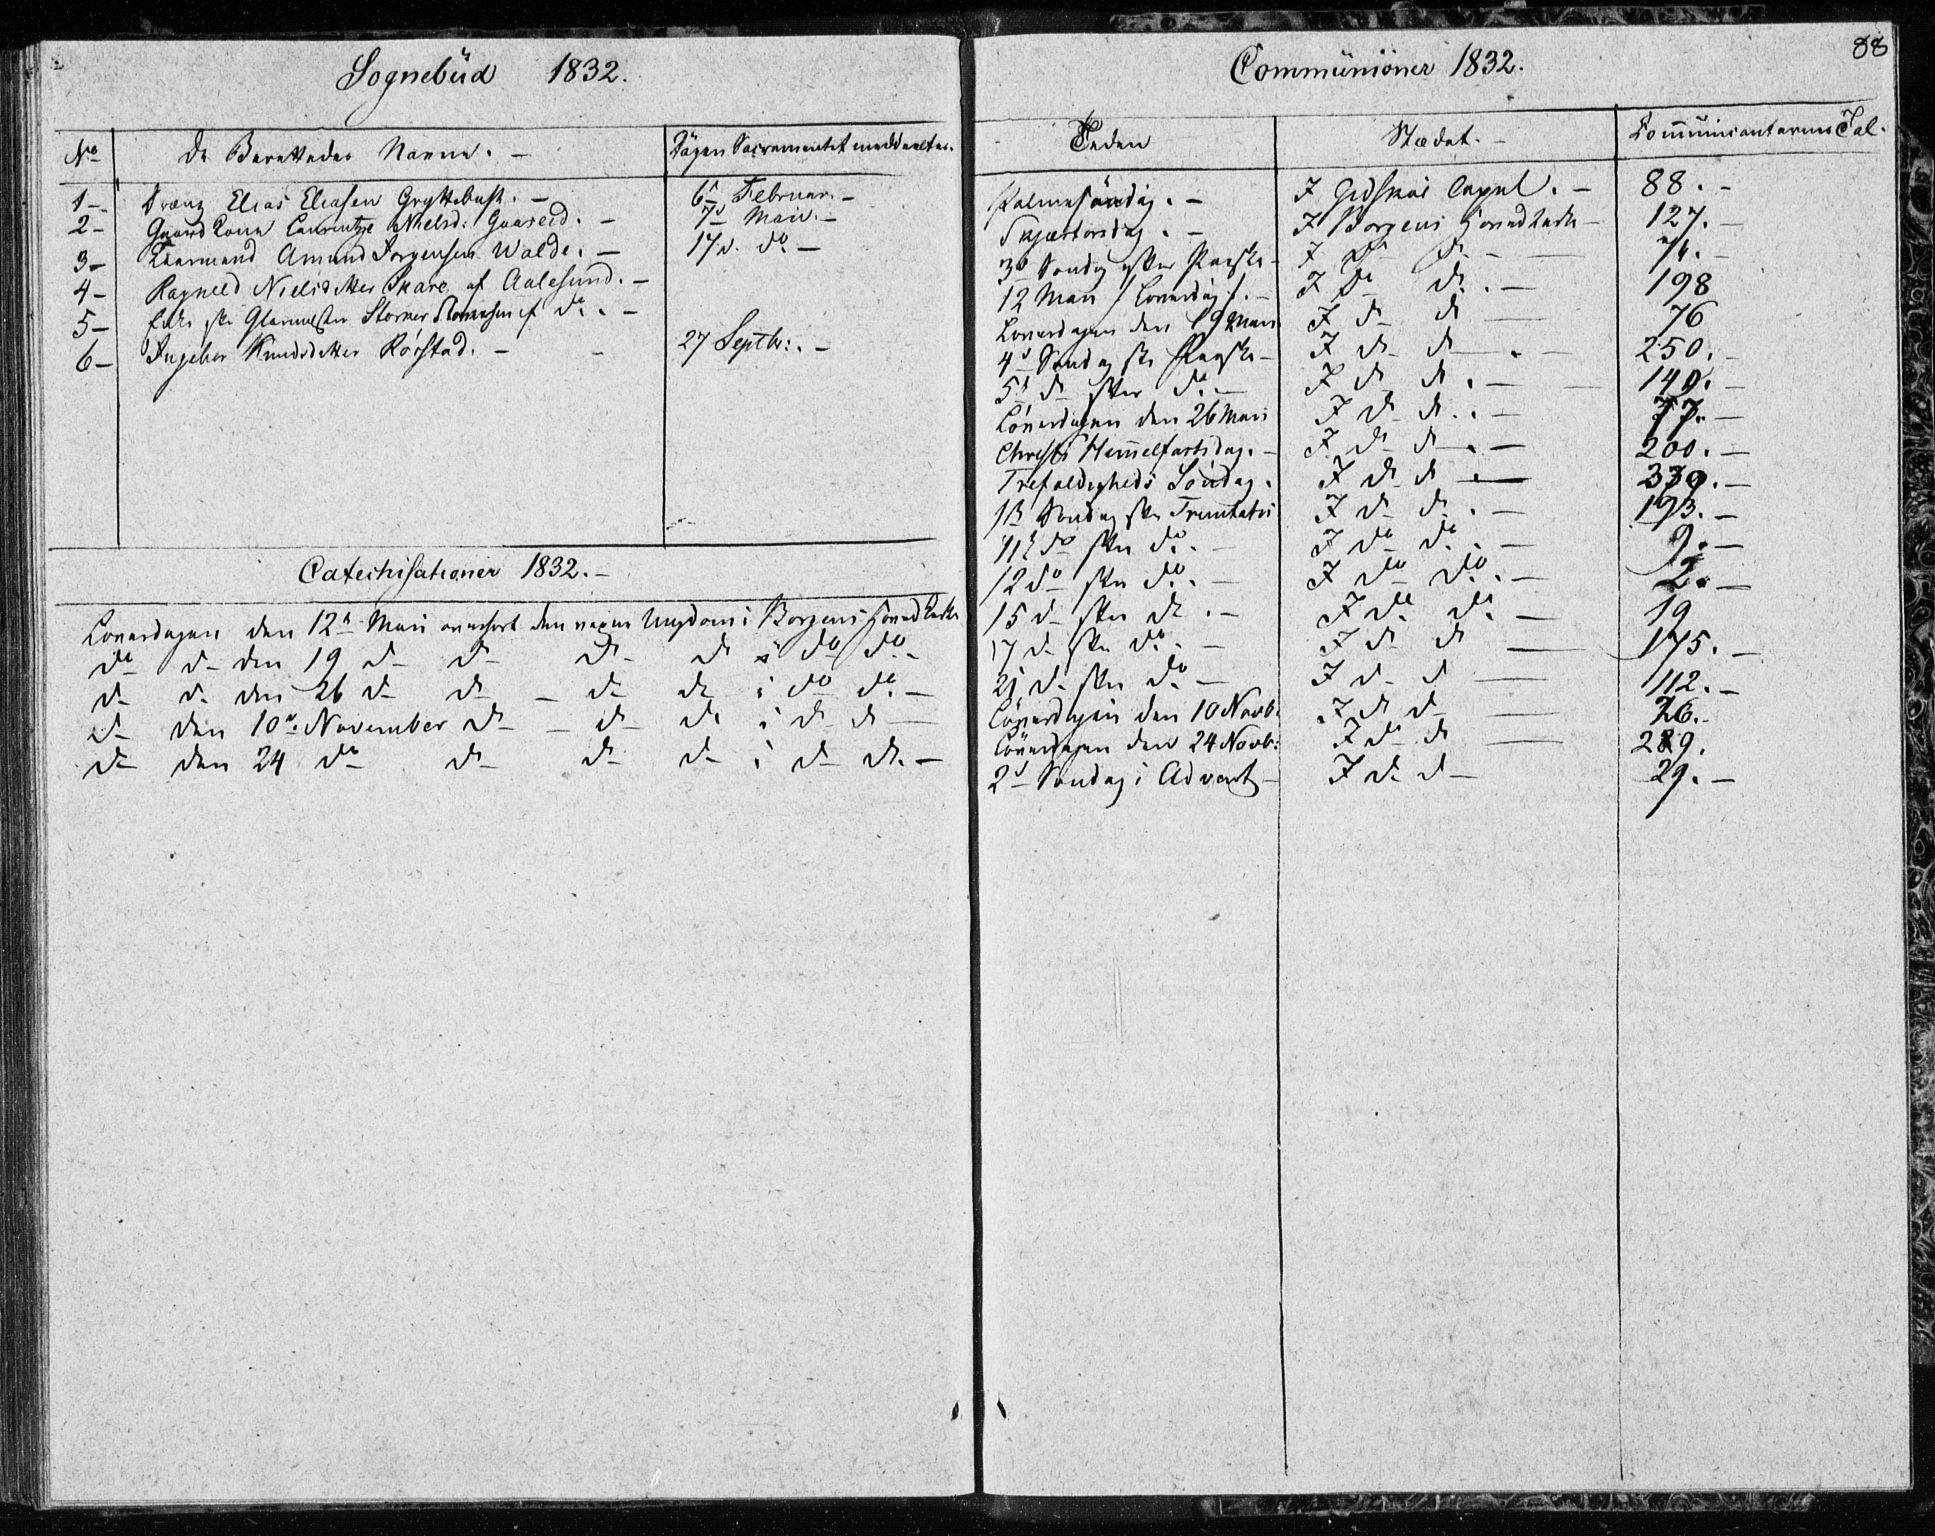 Sognebüd 1832.
No De Berettedes Navne. - Dagen Sacramentet meddeeltes.
1- Dreng Elias Eliasen Gryttebust. - 6te Februar. -
2- Gaardkone Laurentze Nielsd: Gaaseid. - 7de Mai. -
3- Kaarmand Amund Jørgensen Walde. - 17d. do -
4- Ragnild Nielsdatter Skare af Aalesund. -
5- Enke efter Glarmester Stormer af do. -
6- Ingebor Knudsdatter Rørstad. - 27 Septbr:. -
Catechisationer 1832. -
Løverdagen den 12te Mai overhørt den unge Ungdom i Borgens Hovedkirke
do do den 19 do do do do i do do. -
do do den 26 do do - do do i do do. -
do den 10de November do - do do i do do -
do den 24 do do do do i do do. -
Communioner 1832.
88
Tiden Stædet. - Communicanternes Tal.
Palmesøndag. - I Gidskoe Capel. - 88. -
Skjærtorsdag. - I Borgens Hovedkirke - 127. -
3de Søndag efter Paaske - I do do - 74. -
12 Mai / Løverdag /. - I do do. - 198
Løverdagen den 19 Mai I do do - 76
4de Søndag efter Paaske - I do do. - 250. -
5te do efter do. - I do do. - 140. -
Løverdagen den 26 Mai I do do. - 77. -
Christi Himmelfartsdag. - I do do. - 200. -
Trefoldigheds Søndag. I do do. - 330. -
1ste Søndag efter Trinitatis I do do. - 193. -
11te do efter do. - I do do. - 9. -
12 do efter do. - I do do. - 2. -
15 do efter do. - I do do. - 19
17 do efter do. - I do do - 175. -
21 do efter do - I do do - 112. -
Løverdagen den 10 Novb. I do do - 26. -
Løverdagen den 24 Novb: I do do - 289.
2d Søndag i Advent - I do do - 29. -